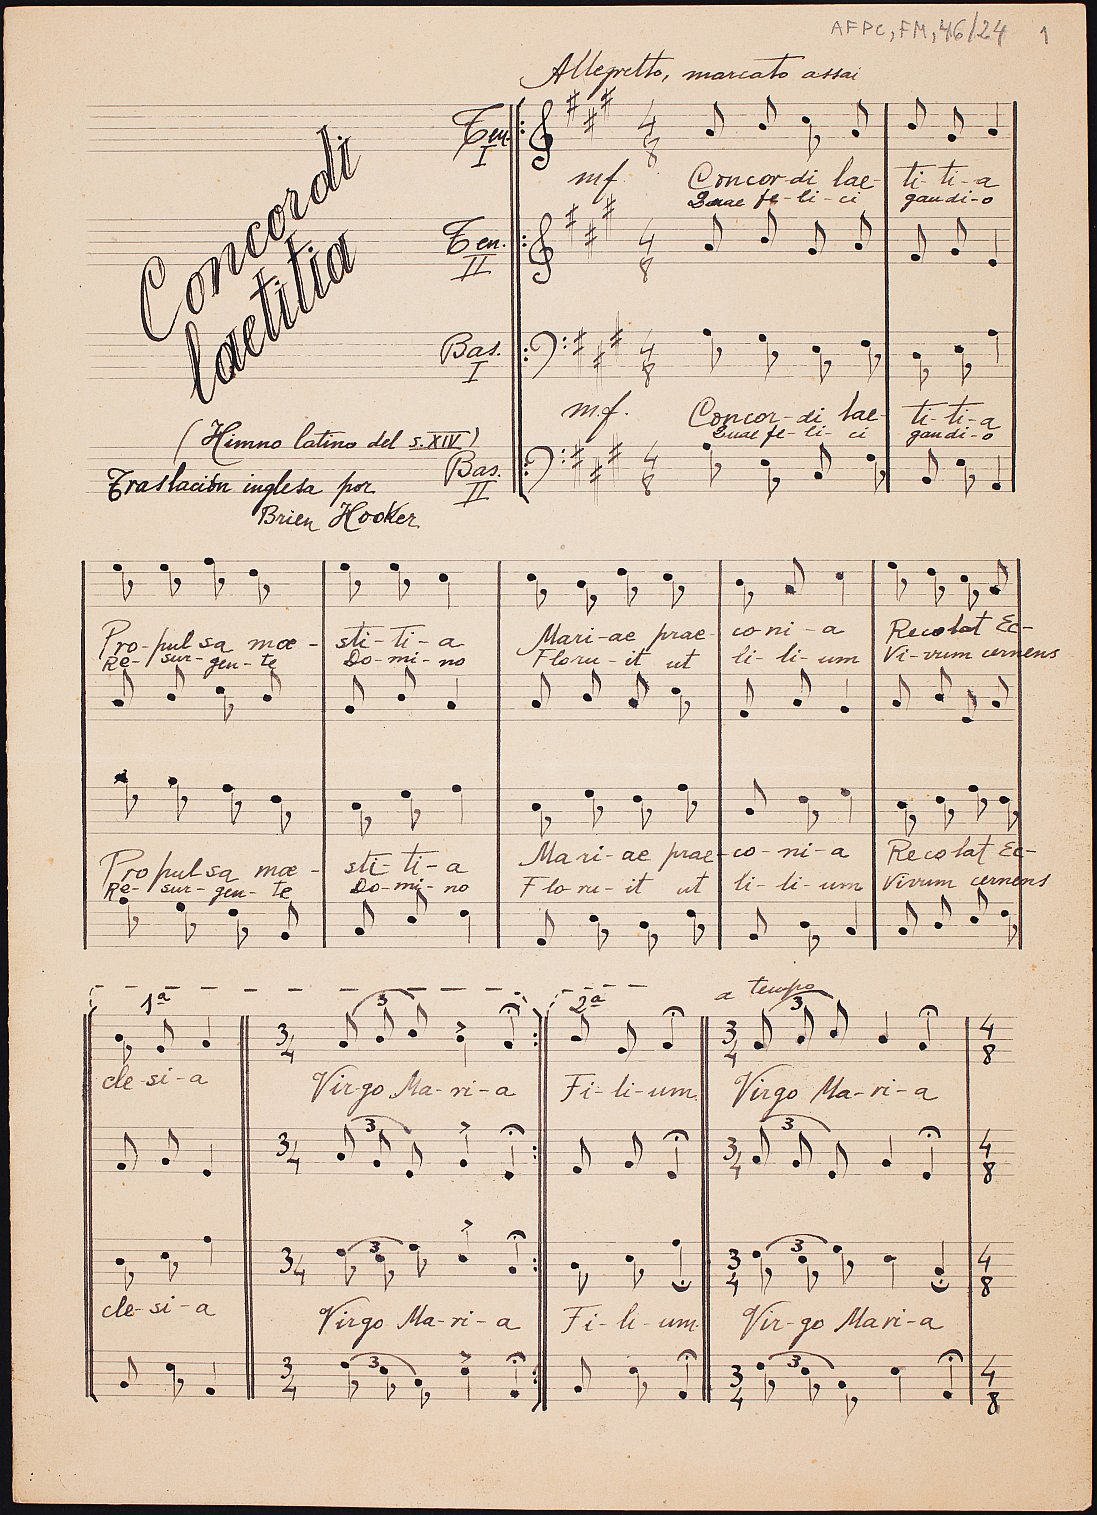 AFPC, FM, 46/24 1
Allegretto, marcato assai
Concordi
laetitia
(Himno latino del s. XIV)
Traslación inglesa por
Brien Hooker
Ten. I
4 8
mf Concor-di lae- ti-ti-a
Quae fe-li-ci gaudi-o
Ten. II
4 8
Bas. I
4 8
m.f. Concor-di lae- ti-ti-a
Quae fe-li-ci gaudi-o
Bas. II
4 8
Pro-pul sa mœ- sti-ti-a Mari-ae prae- co ni-a Recolat Ec-
Re-sur-gen-te Do-mi-no Floru-it ut li-li-um Vi-vum cernens
Propulsa mœ- sti-ti-a Mari-ae prae-co-ni-a Recolat Ec-
Re-sur-gen-te Do-mi-no Flo ru-it ut li-li-um Vivum cernens
1ª 3 2ª a tempo 3
3 4 3 4 4 8
cle-si-a Virgo Ma-ri-a Fi-li-um Virgo Ma-ri-a
3 3
3 4 3 4 4 8
3 3
3 4 3 4 4 8
cle-si-a Virgo Ma-ri-a Fi-li-um Vir-go Mari-a
3 3
3 4 3 4 4 8